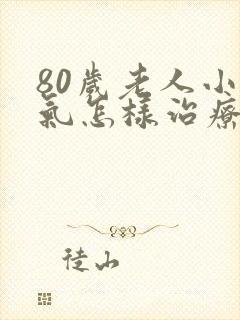 80歲老人小
氣怎樣治療
徒山